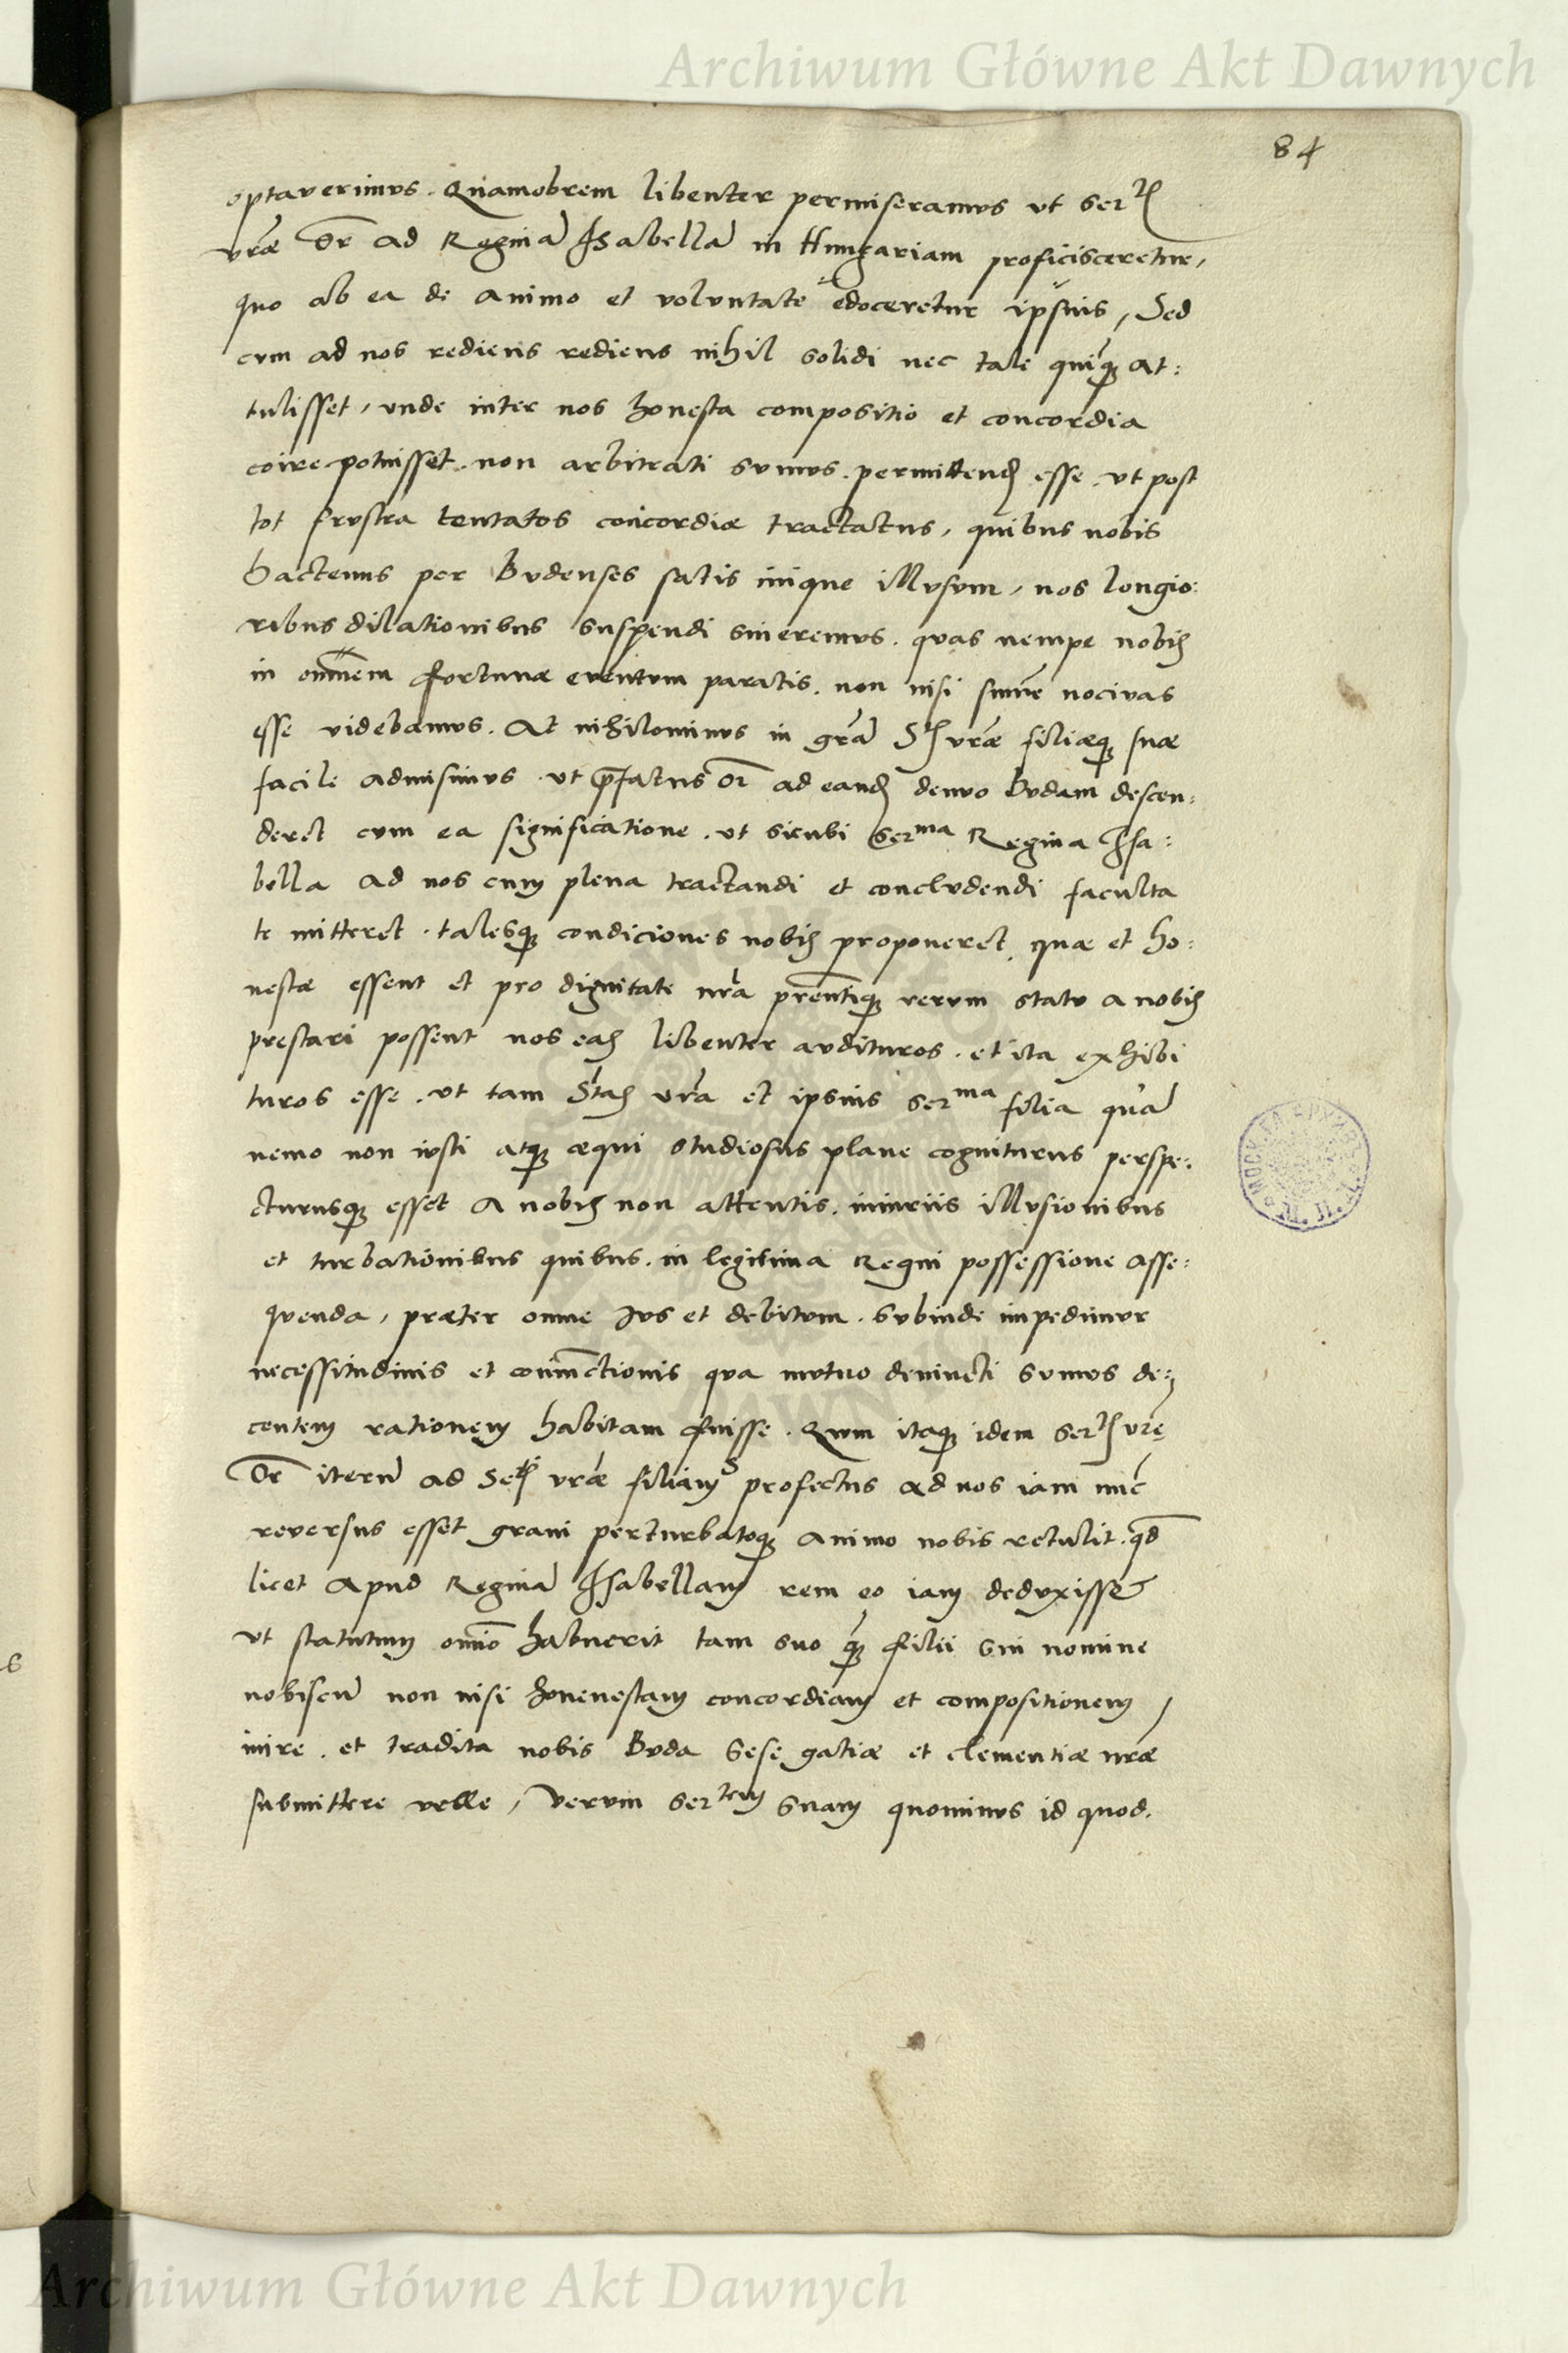 Archiwum Główne Akt Dawnych
84
optaverimus. Quamobrem libenter permiseramus ut Ser^tis
vrãe Or̃ ad Reginã Isabellã in Hungariam proficisceretur,
quo ab ea de animo et voluntate edoceretur ipsius, Sed
cum ad nos rediens rediens nihil solidi nec tale quicq̃ at:
tulisset, unde inter nos honesta compositio et concordia
coire potuisset. non arbitrati sumus. permittend esse. ut post
tot frustra tentatos concordiæ tractatus, quibus nobis
hactenus per Budenses satis inique illusum, nos longio:
ribus dilationibus suspendi sineremus. quas nempe nobis
in om̃nem fortunæ eventum paratis. non nisi sum̃e nocivas
esse videbamus. At nihilominus in grãm S^tis vrãe filiæq; suæ
facile admisimus. ut p̃fatus Or̃ ad eand denuo Budam descen:
deret cum ea significatione. ut sicubi Ser^ma Regina Isa:
bella ad nos cum plena tractandi et concludendi faculta
te mitteret. talesq; condiciones nobis proponeret. quæ et ho:
nestæ essent et pro dignitate nrã pñtiq; rerum statu a nobis
prestari possent nos eas libenter audituros. et ita exhibi
turos esse. ut tam S^tas vrã et ipsius Ser^ma filia quã
nemo non iusti atq; æqui studiosus plane cogniturus perspe:
cturusq; esset a nobis non attentis. iniuriis illusionibus
et turbationibus quibus. in legitima Regni possessione asse:
quenda, præter omne Ius et debitum. subinde impedimur
necessitudinis et coniunctionis qua mutuo devincti sumus de:
centem rationem habitam fuisse. Qum itaq; idem Ser^tis vrẽ
Or̃ iterũ ad Se^tis vrãe filiam profectus ad nos iam nũc
reversus esset gravi perturbatoq; animo nobis retulit. qd̃
licet apud Reginã Isabellam rem eo iam deduxisset
ut statutum om̃io habuerit tam suo q̃ filii sui nomine
nobiscũ non nisi honenestam concordiam et compositionem
inire. et tradita nobis Buda sese gatiæ et clementiæ nrãe
submittere velle, Verum Ser^tem suam quominus id quod.
Archiwum Główne Akt Dawnych